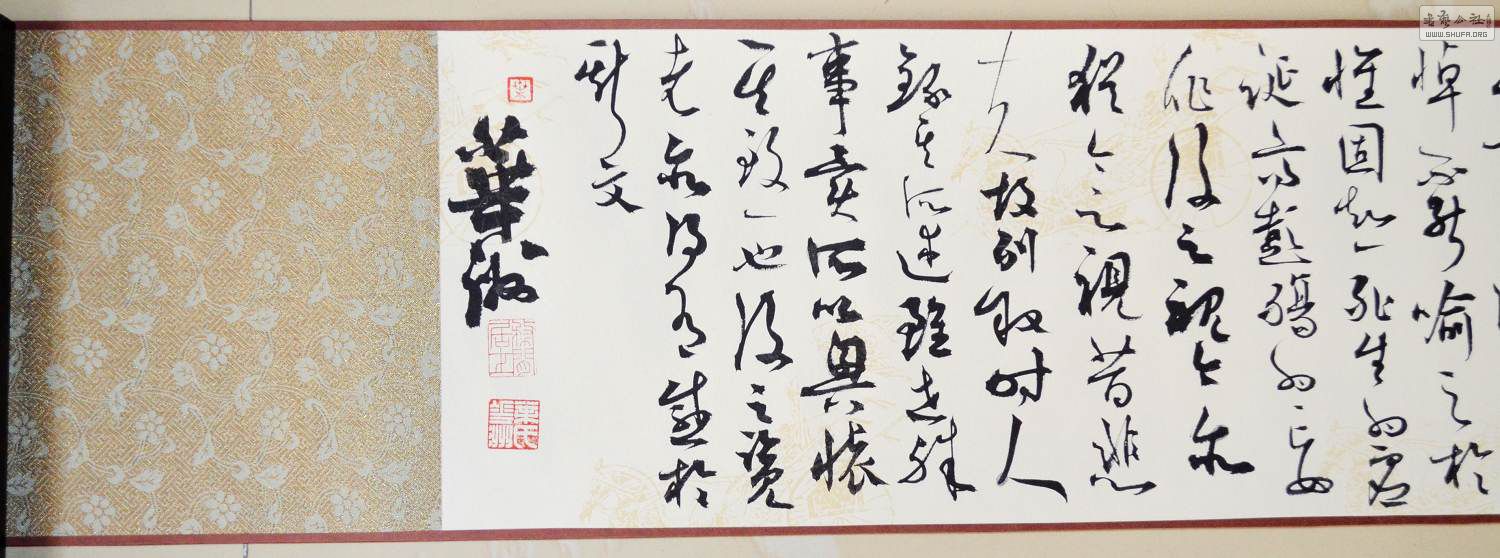 悼不能喻之於
懷固知一死生為虛
誕齊彭殤為妄
作後之視今亦
猶今之視昔悲
夫故列敘時人
錄其所述雖世殊
事異所以興懷
其致一也後之覽
者亦將有感於
斯文
书艺公社
WWW.SHUFA.ORG